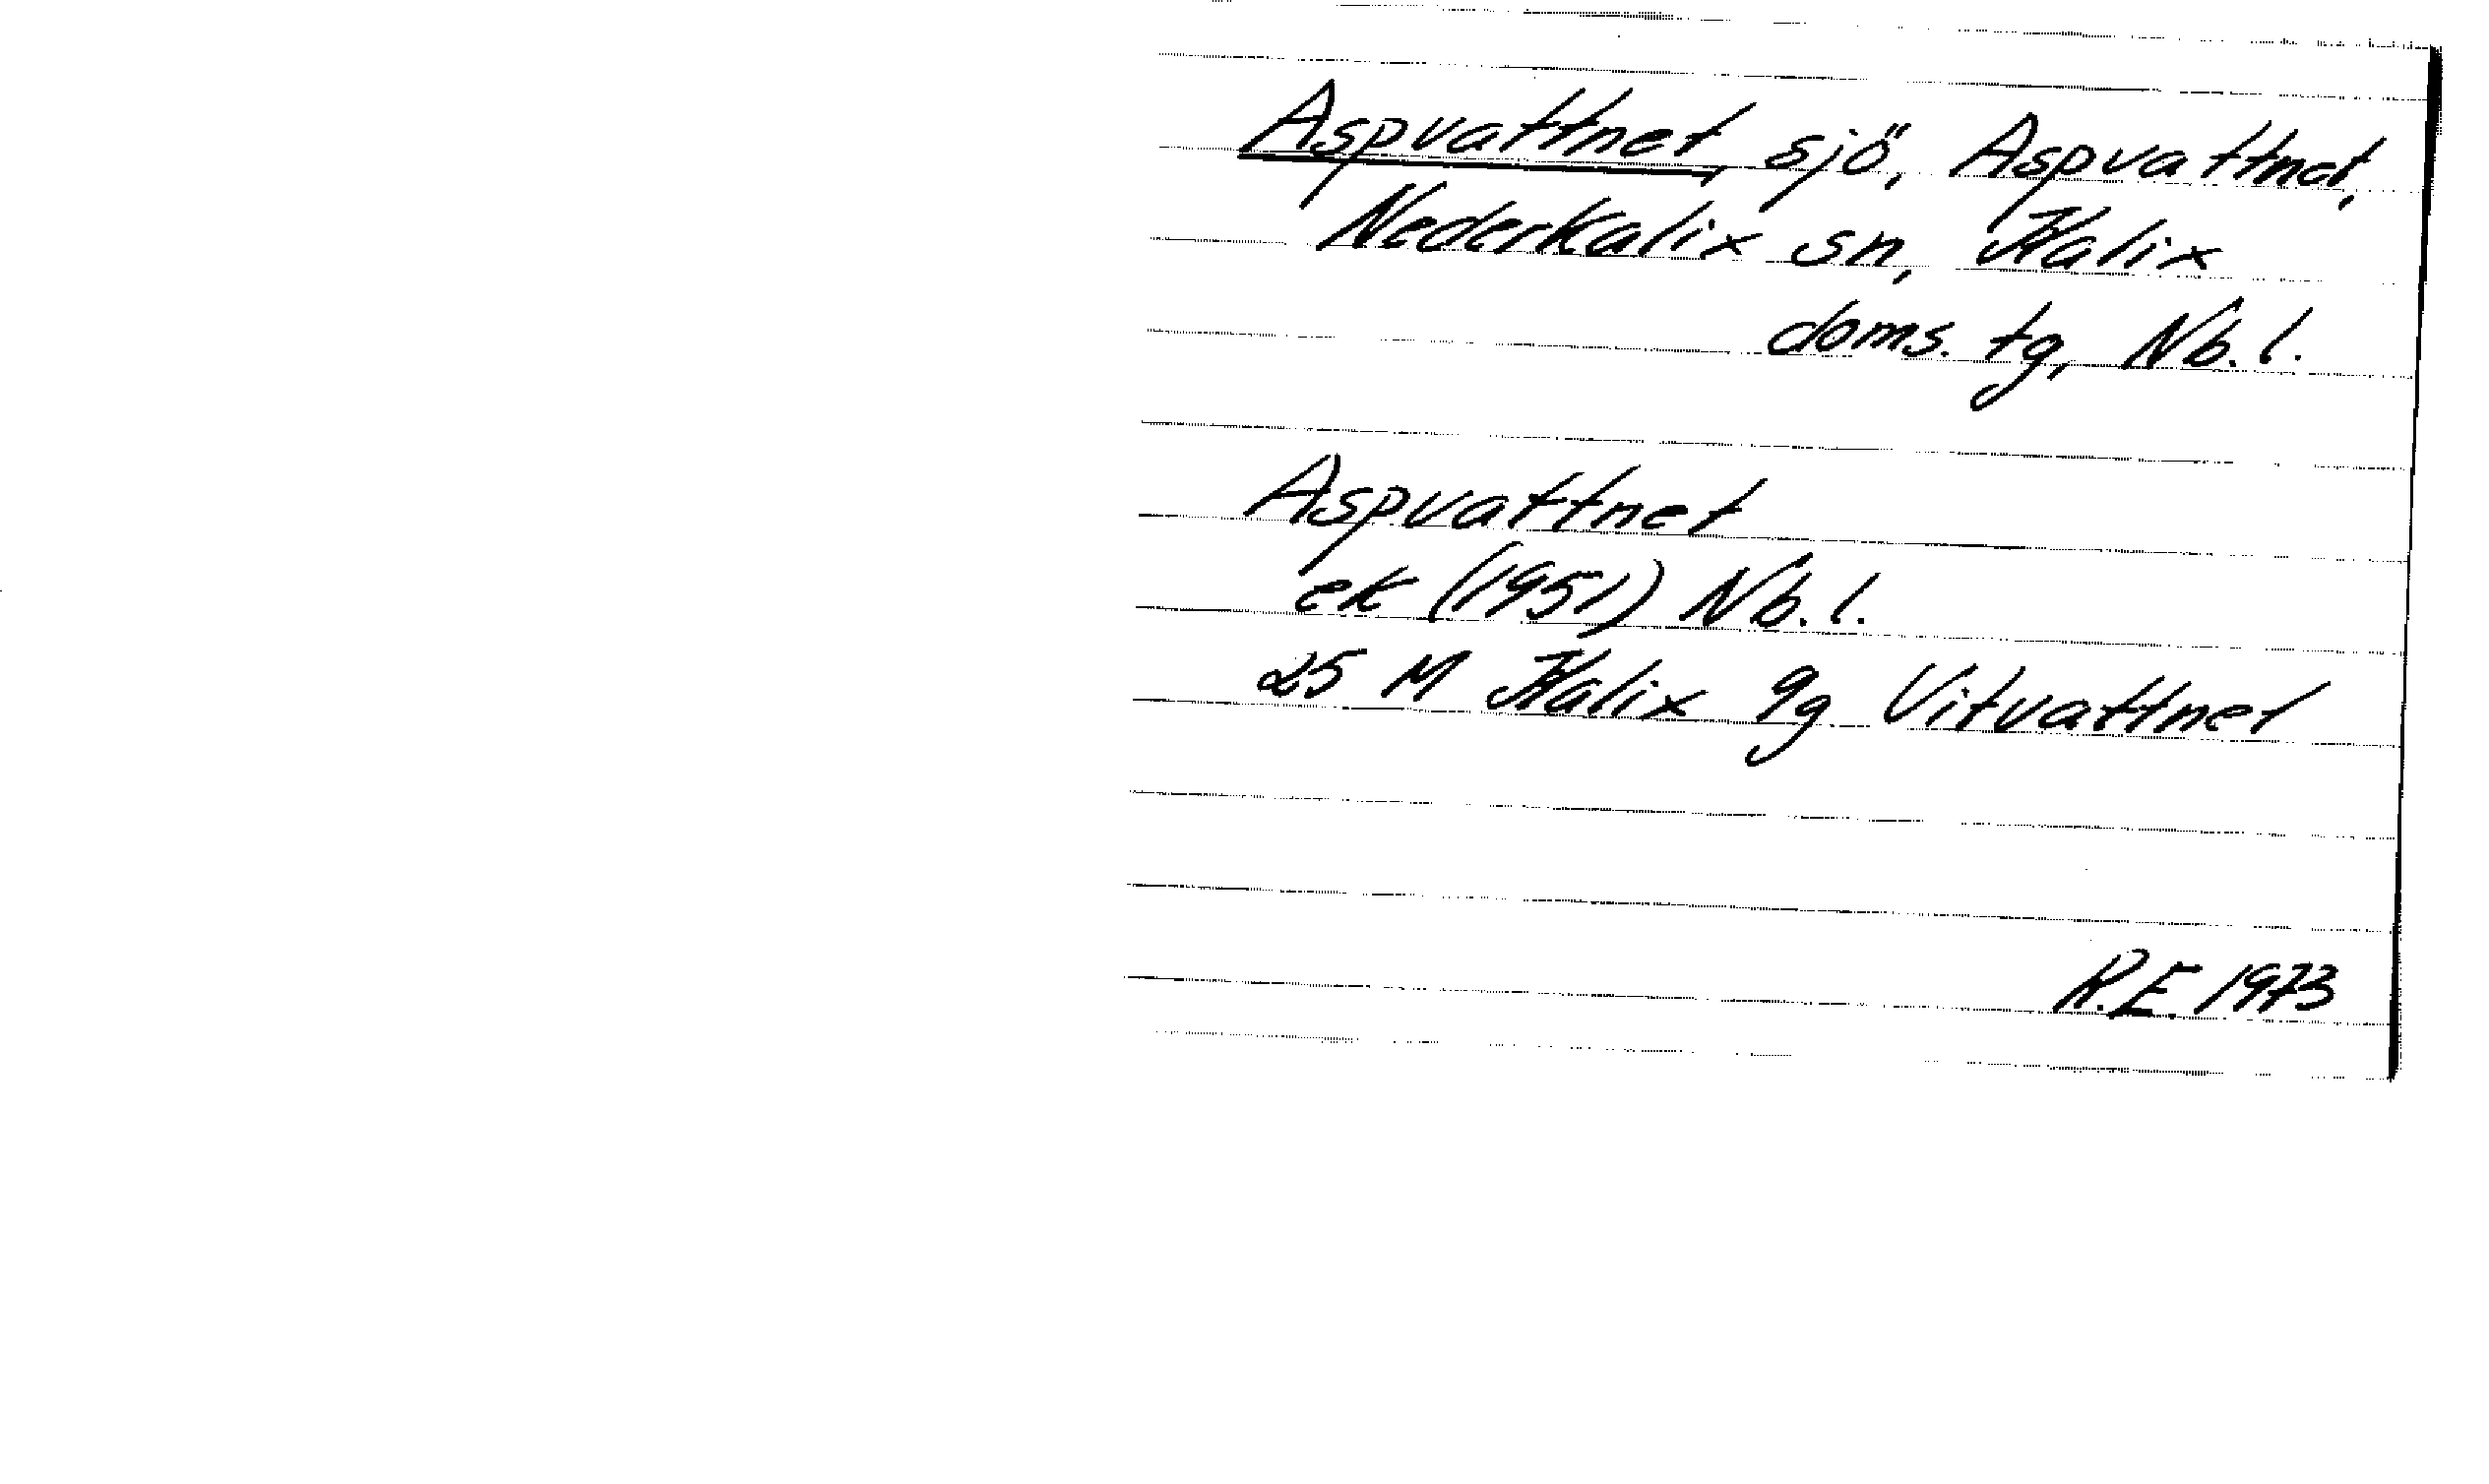 Aspvattnet, sjö, Aspvattnet,
Nederkalix sn, Kalix
doms. tg, Nb. l.
Aspvattnet
ek (1951) Nb. l.
25 M Kalix 9g Vitvattnet
R.E. 1973